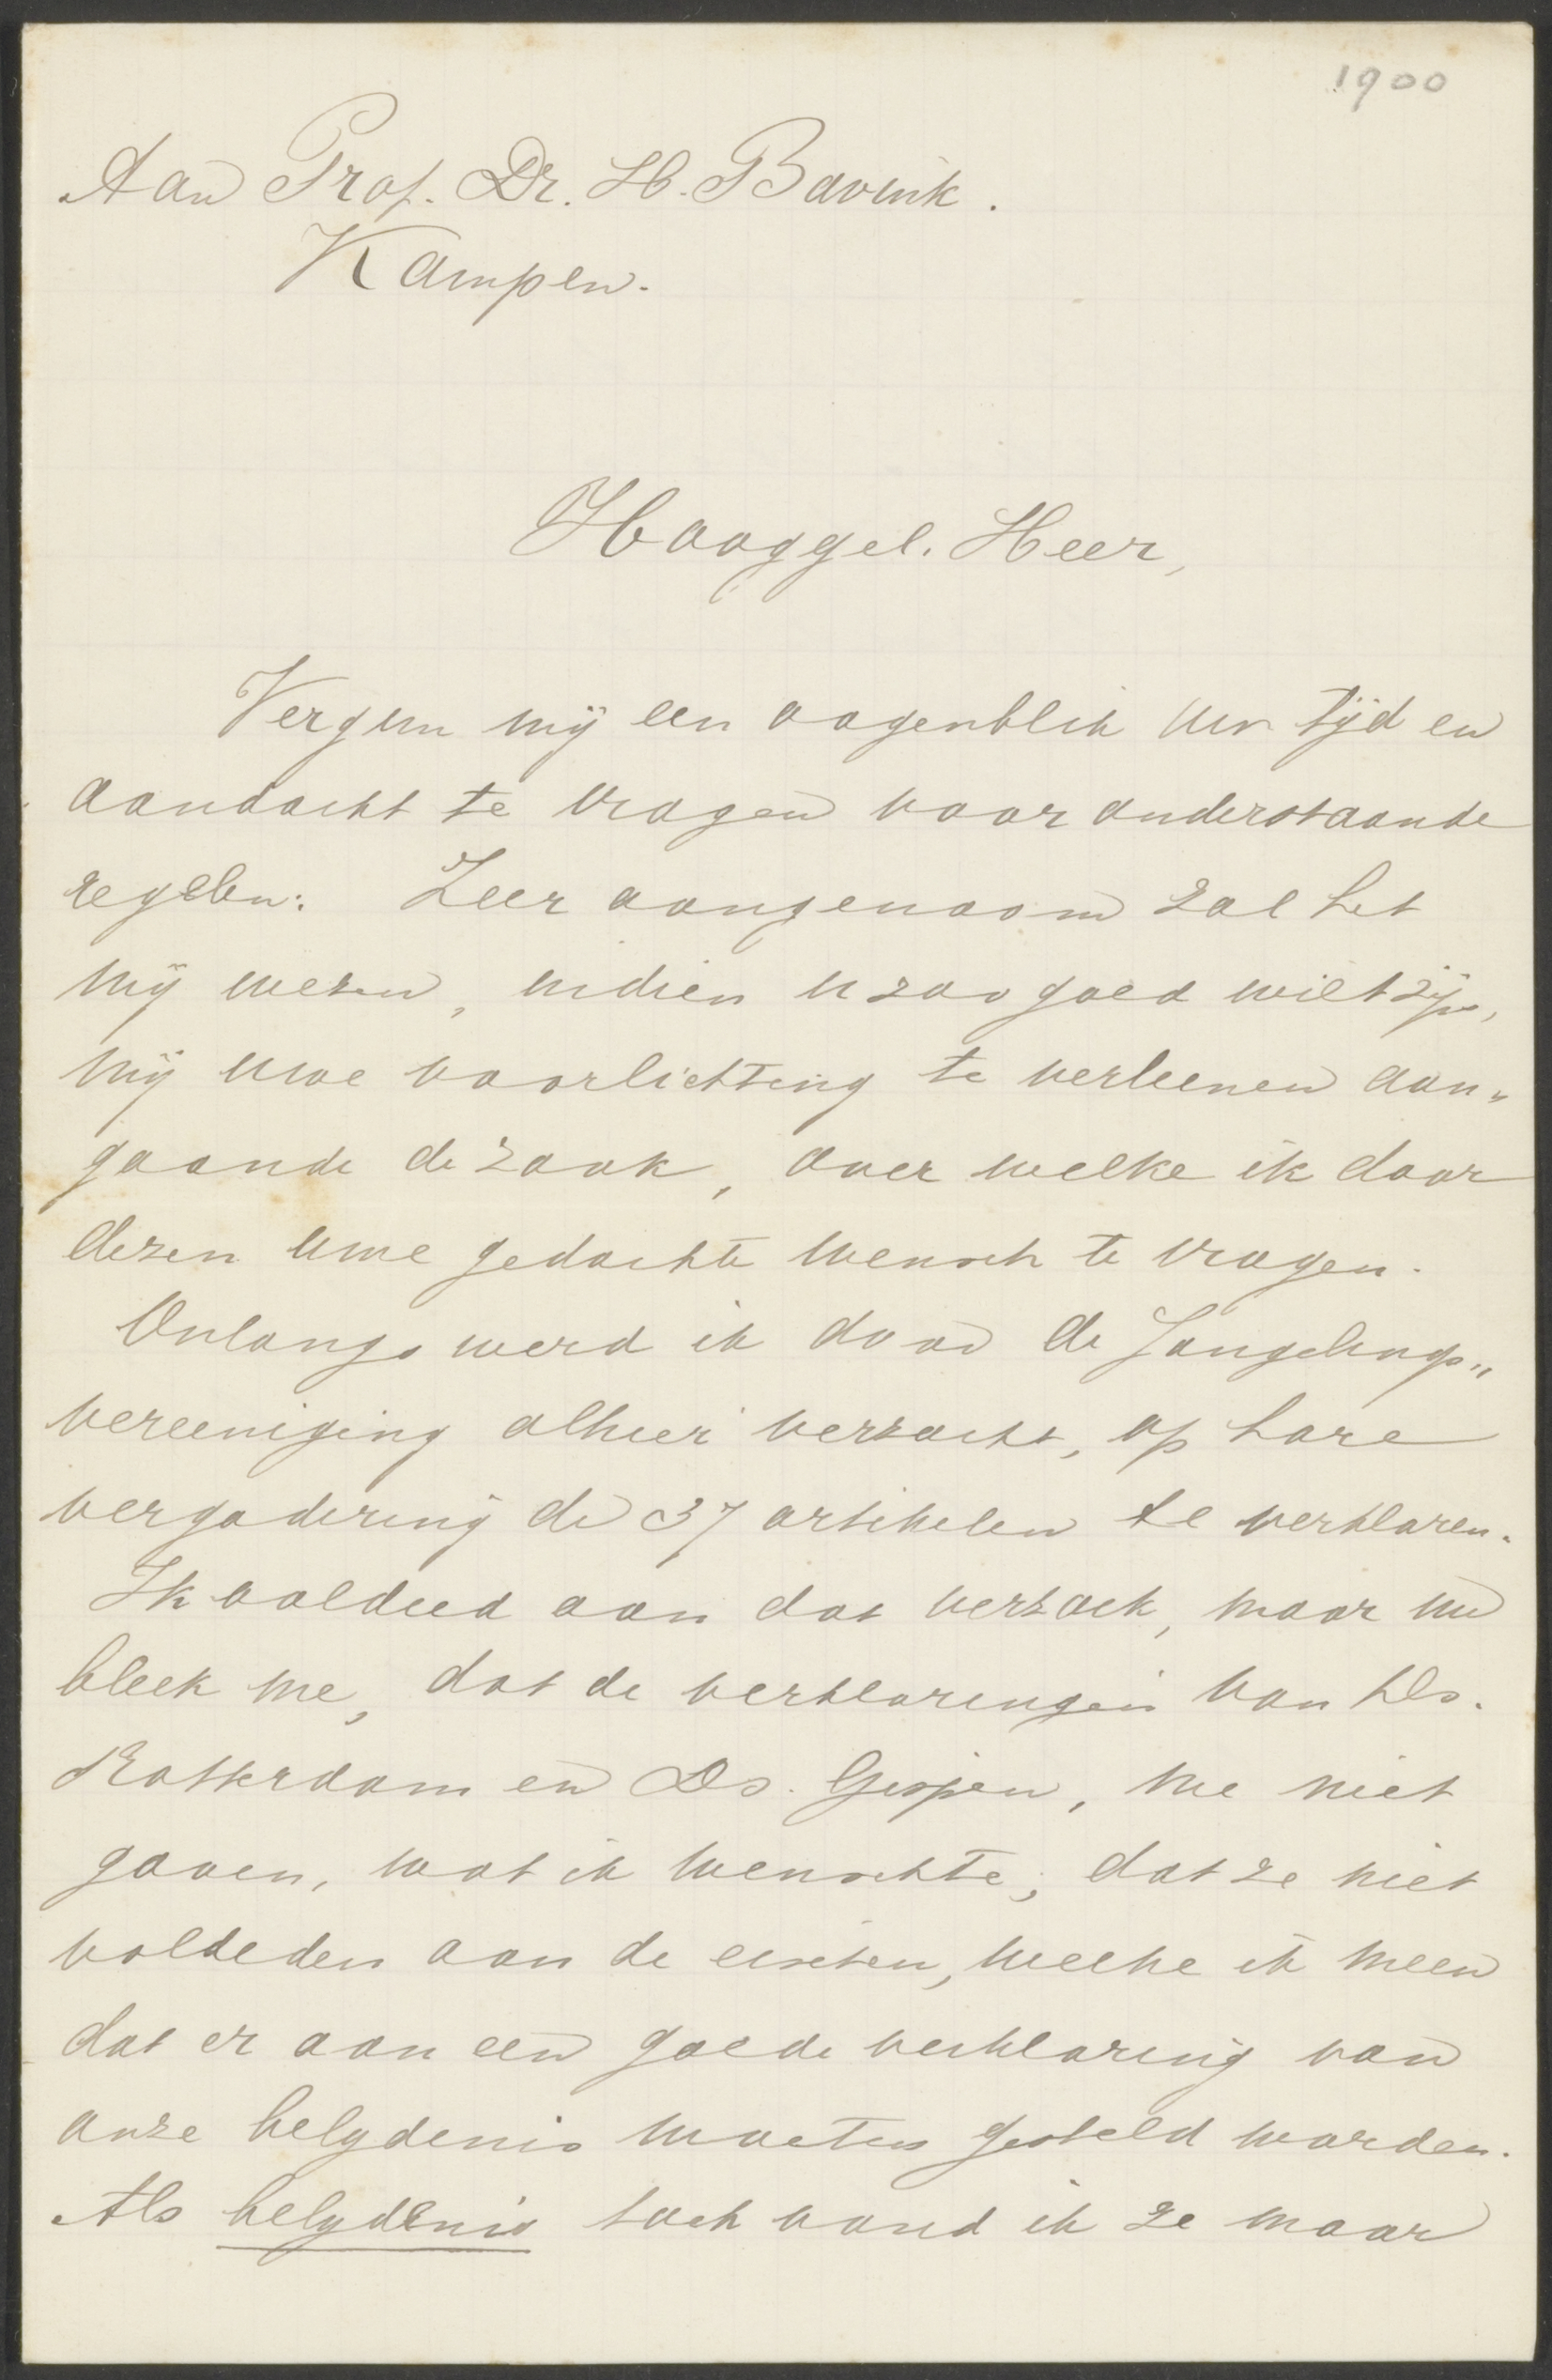 1900
Aan Prof. Dr. H. Bavink.
Kampen.
Hooggel. Heer,
Vergun mij een oogenblik uw tijd en
aandacht te vragen voor onderstaande
regelen. Zeer aangenaam zal het
mij wezen, indien u zoo goed wilt zijn,
mij uwe voorlichting te verleenen aan„
gaande de zaak, over welke ik door
dezen uwe gedachte wensch te vragen.
Onlangs werd ik door de Jongelings„
vereeniging alhier verzocht, op hare
vergadering de 37 artikelen te verklaren.
Ik voldeed aan dat verzoek, maar nu
bleek me, dat de verklaringen van Ds.
Rotterdam en Ds. Gispen, me niet
gaven, wat ik wenschte; dat ze niet
voldeden aan de eischen, welke ik meen
dat er aan een goede verklaring van
onze belydenis moeten gesteld worden.
Als belydenis toch vond ik ze maar